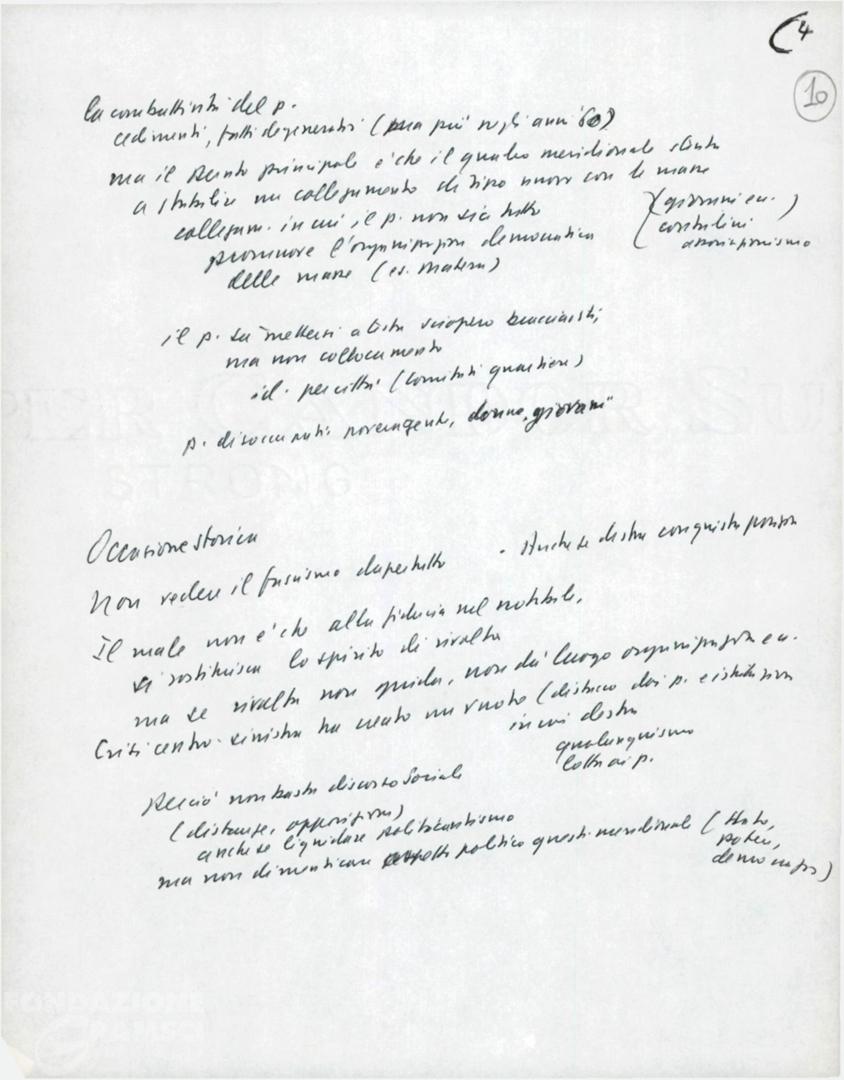 4
10
la combattività del p.
cedimenti, fatti degenerativi (ma più negli anni 60)
ma il punto principale è che il quadro meridionale stenta
a stabilire un collegamento di tipo nuovo con le masse
collegam. in cui il p. non sia tutto
(giovani ecc. )
contadini
associazionismo
promuove l'organizzazione democratica
delle masse (es. Matera)
il p. sa mettersi a testa sciopero braccianti,
ma non collocamento
id. per città (comitati quartiere)
p. disoccupati: povera gente, donne, giovani"
Occasione storica
Non vedere il fascismo dapertutto
- Anche se destra conquista
Il male non è che alla fiducia nel notabile,
si sostituisca lo spirito di rivolta
ma se rivolta non guida, non dà luogo organizzazione ecc.
Crisi centro-sinistra ha creato un vuoto (distacco dai p. e istituzioni
in cui destra
qualunquismo
lotta ai p.
Perciò non basta discorso sociale
(distanze, opposizioni)
anche se liquidare politicantismo
ma non dimenticare aspetto politico questi. meridionale (Stato,
potere,
democrazia)
FONDAZIONE
GRAMSCI